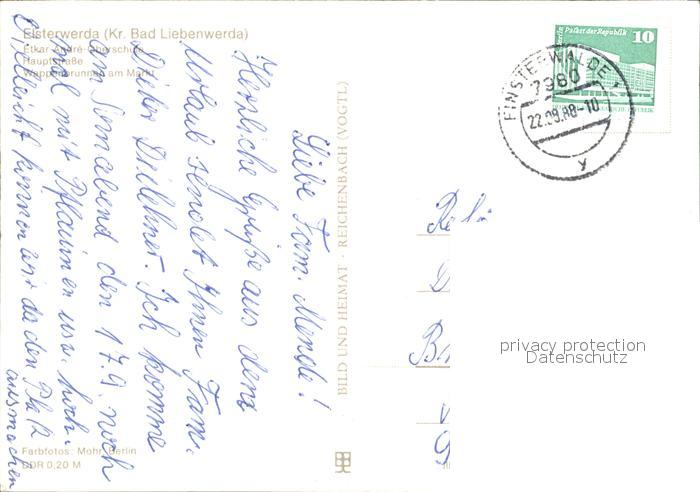 Elsterwerda (Kr. Bad Liebenwerda)
Etkar-André-Oberschule
Hauptstraße
Wappenbrunnen am Markt
Liebe Fam. Mengle!
Herzliche Grüße aus dem
Urlaub sendet Ihnen Fam.
Dieter Ich komme
am Sonnabend den 17.9. noch
mal mit Pflaumen usw. hoch.
Vielleicht können wir da den Platz
ausmachen
Farbfotos: Mohr, Berlin
DDR 0,20 M
BILD UND HEIMAT · REICHENBACH (VOGTL)
Palast der Republik
Berlin
10
FINSTERWALDE 1
7980
22.09.88-10
y
privacy protection
Datenschutz